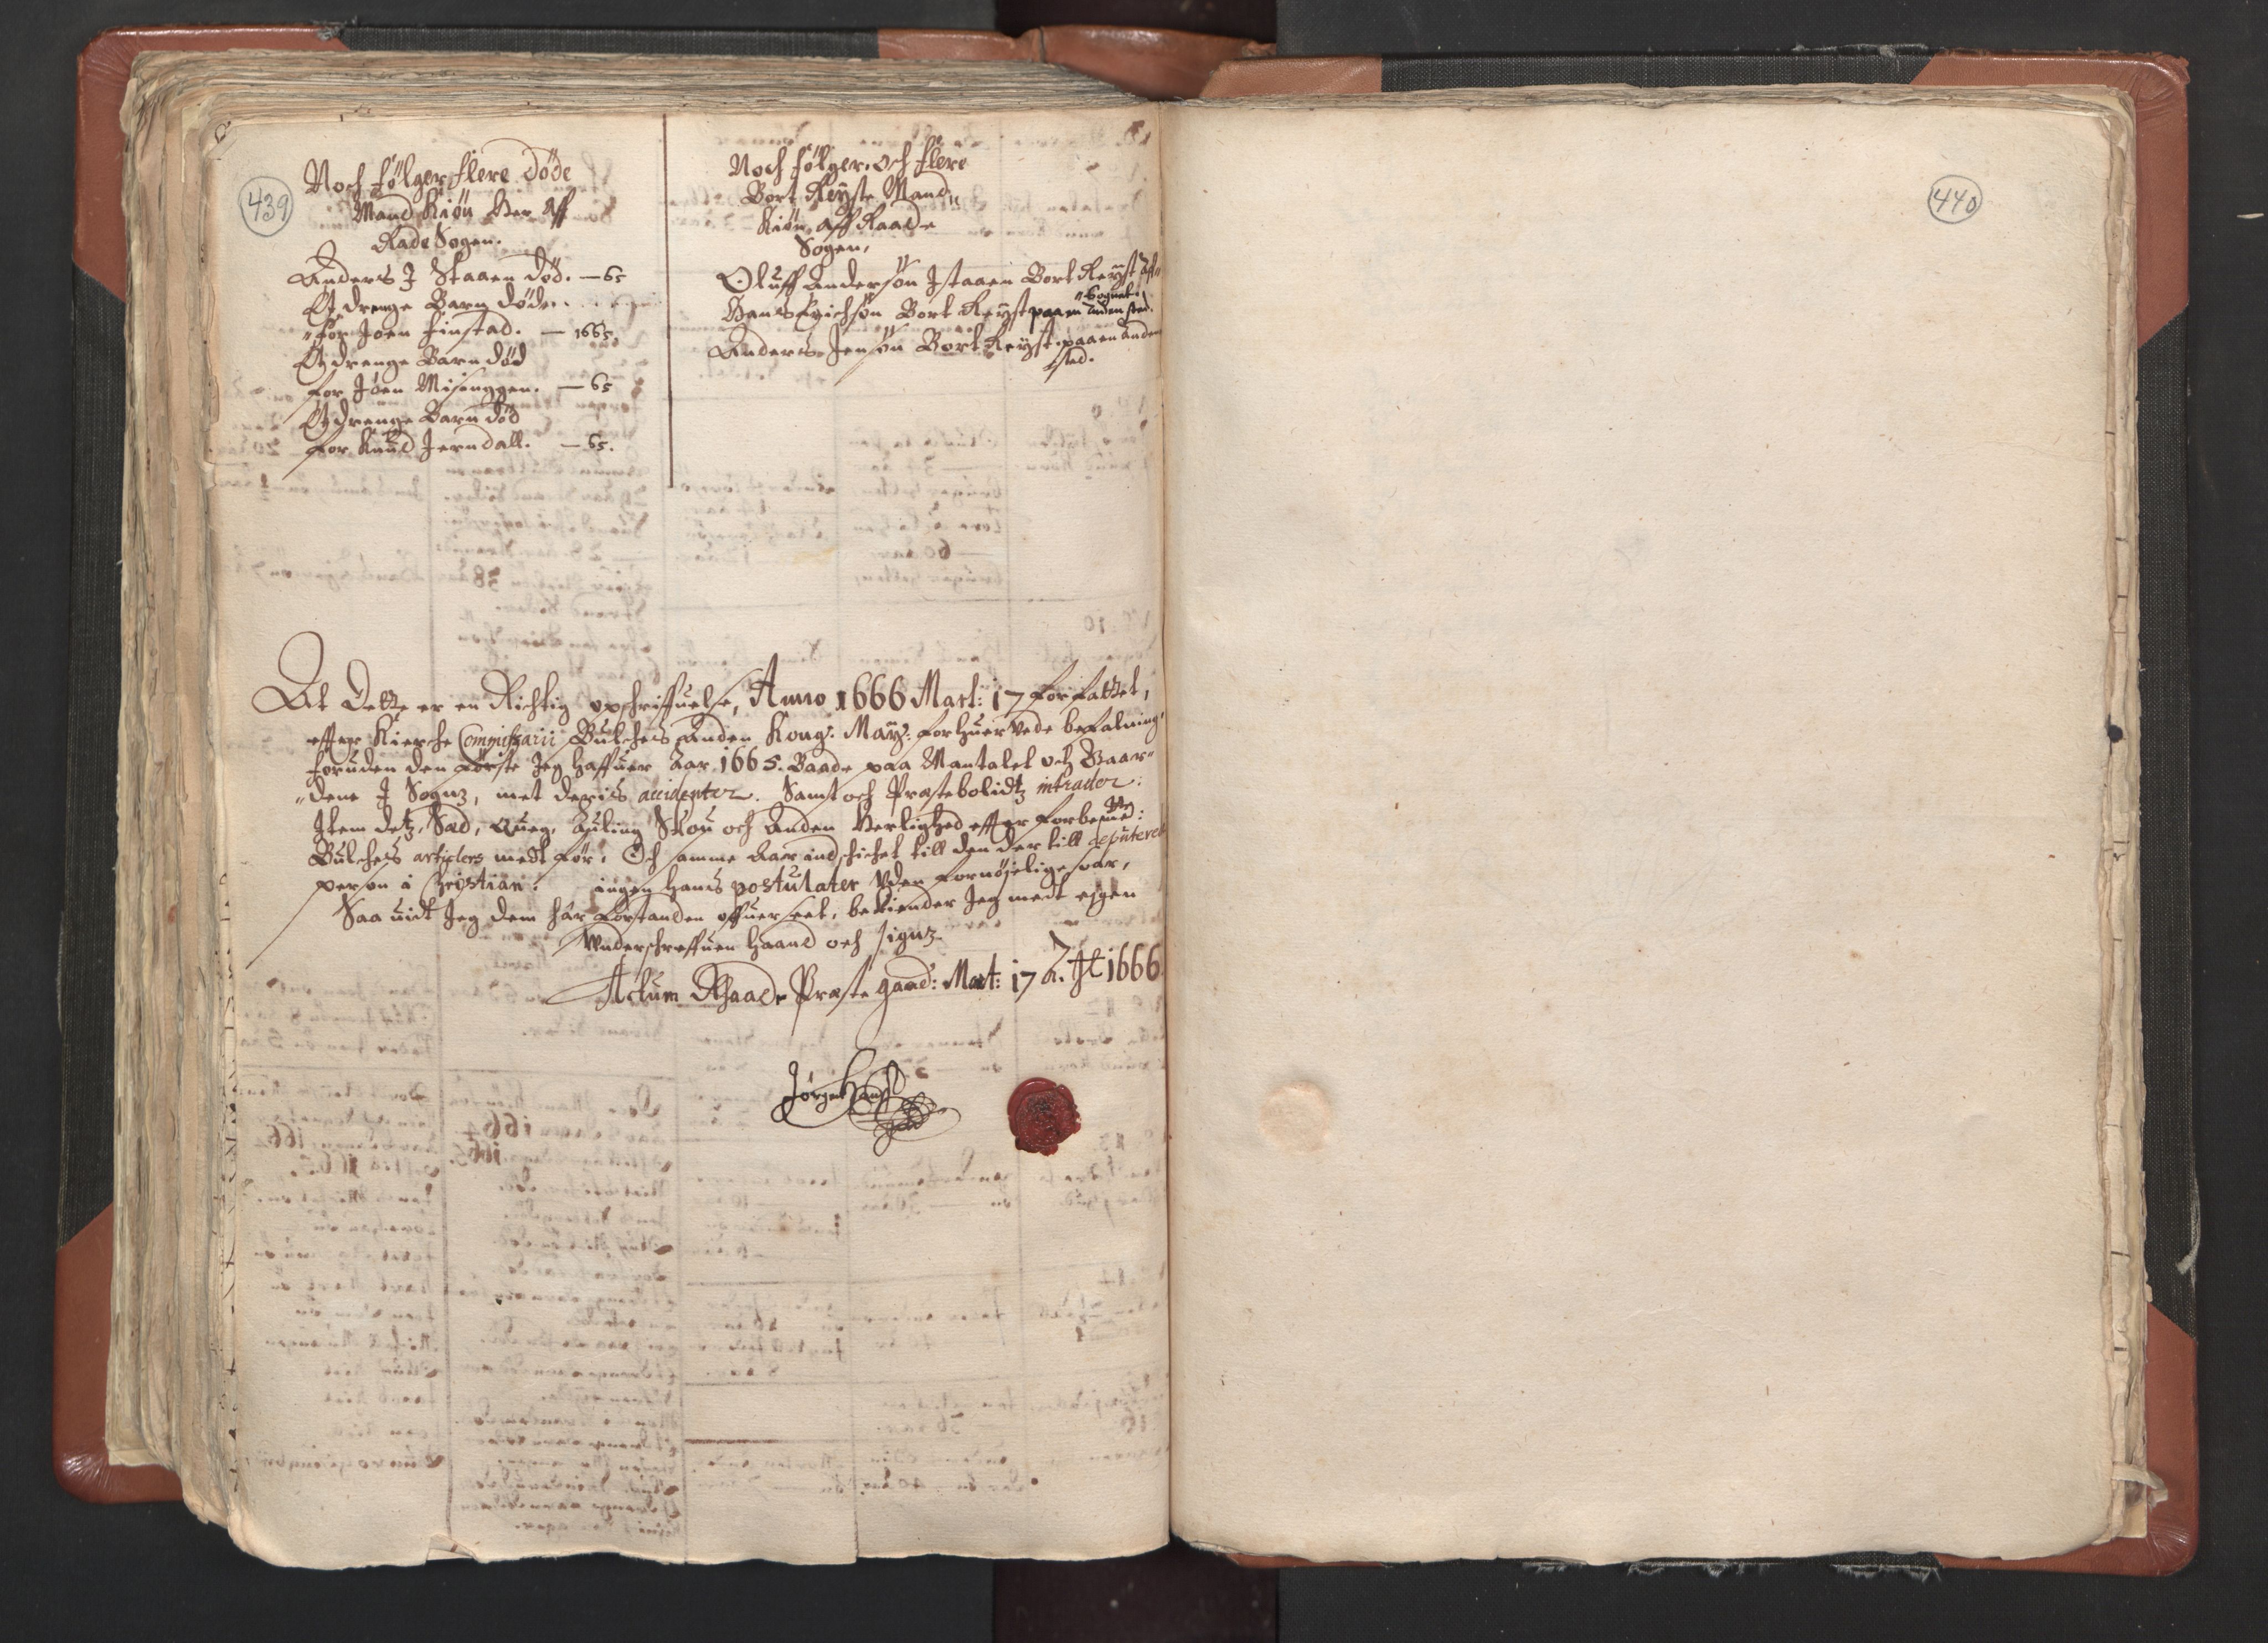 439
Noch følger flere døde
Mand Kiøn Her Aff
Rade Sogen.
Anders J Staaen død. — 65
Et drenge Barn døde
for Joen Finstad. — 1665.
Et drenge Barn død
for Joen Misinggen. — 65
Et drenge Barn død
for Knud Jerndall. — 65.
Noch følger och flere
Bort Reyste Mand
Kiøn aff Raade
Sogen,
Oluff Andersøn J staaen Bort Reyst aff
Sognet.
Hans Erichsøn Bort Reyst paa en anden sted.
Anders Jensøn Bort Reyst paa en anden
sted.
At Dette er en Richtig opschriffuelse, Anno 1666 Mart: 17 forfattet,
effter Kierche Commissarii Bulches Anden Kong: May: forhuervede befalning,
foruden den første Jeg haffuer Aar 1665. Baade paa Mantalet och Gaar
dene J Sognz, met deris accidenter. Samt och Præstebolidtz intrader:
Item detz, Sæd, Queg, Auling Skou och Anden Herlighed effter forbemte:
Bulches articlers medt før. Och samme Aar indschichet till den der till deputerede
person i Christian: ingen hans postulater Uden fornøjelige svar,
Saa uidt Jeg dem haar forstanden offuerseet, bekiender Jeg medt eygen
Underschreffuen haand och signz.
Actum Rhaade Præste gaard: Mart: 17 1666.
Jørgen Hanss
440